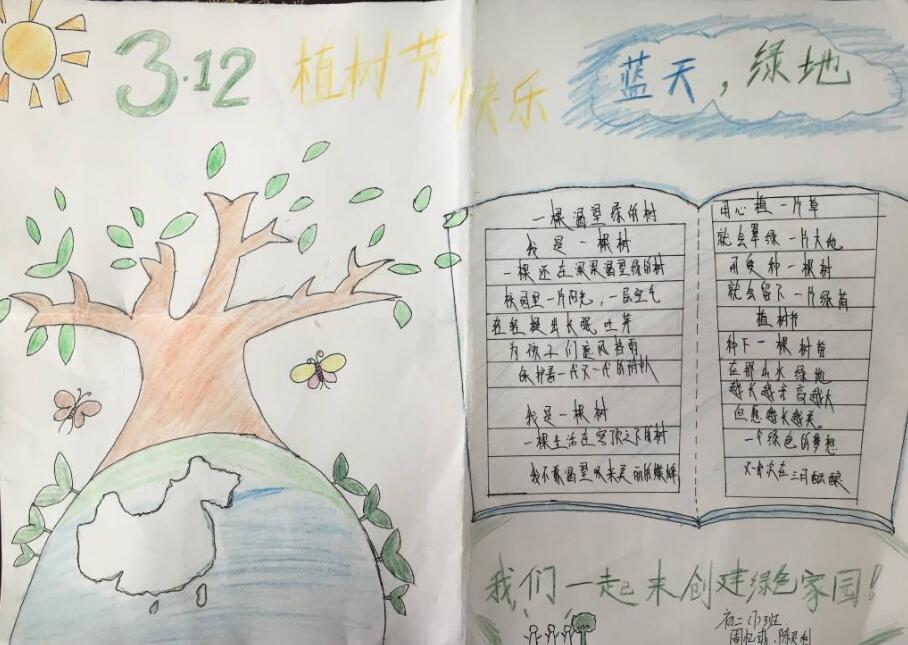 3·12 植树节快乐
蓝天，绿地
一棵渴望绿的树
我是一棵树
一棵还在深深渴望绿的树
校园里一片阳光，一层空气
轻轻提出长眠吐芽
为孩子们遮风挡雨
一代又一代的
我是一棵树
一棵生活在穹顶之下的树
我不敢渴望
用心植一片草
就会翠绿一片大地
用爱种一棵树
就会留下一片绿荫
植树节
种下一棵树苗
在那山水绿地
越长越高越大
但愿越长越美。
一个绿色的梦想
在三月酝酿
我们一起来创建绿色家园！
初二（1）班